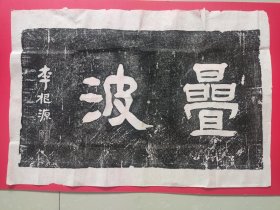 疊波
李根源